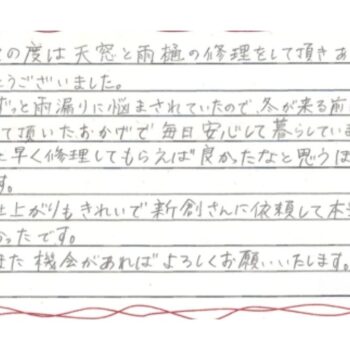 の度は天窓と雨樋の修理をして頂きあ
とうございました。
ずっと雨漏りに悩まされていたので、冬が来る前
て頂いたおかげで毎日安心して暮らしていま
と早く修理してもらえば良かったなと思うほ
す。
仕上がりもきれいで新創さんに依頼して本当
かったです。
また機会があればよろしくお願いいたします。